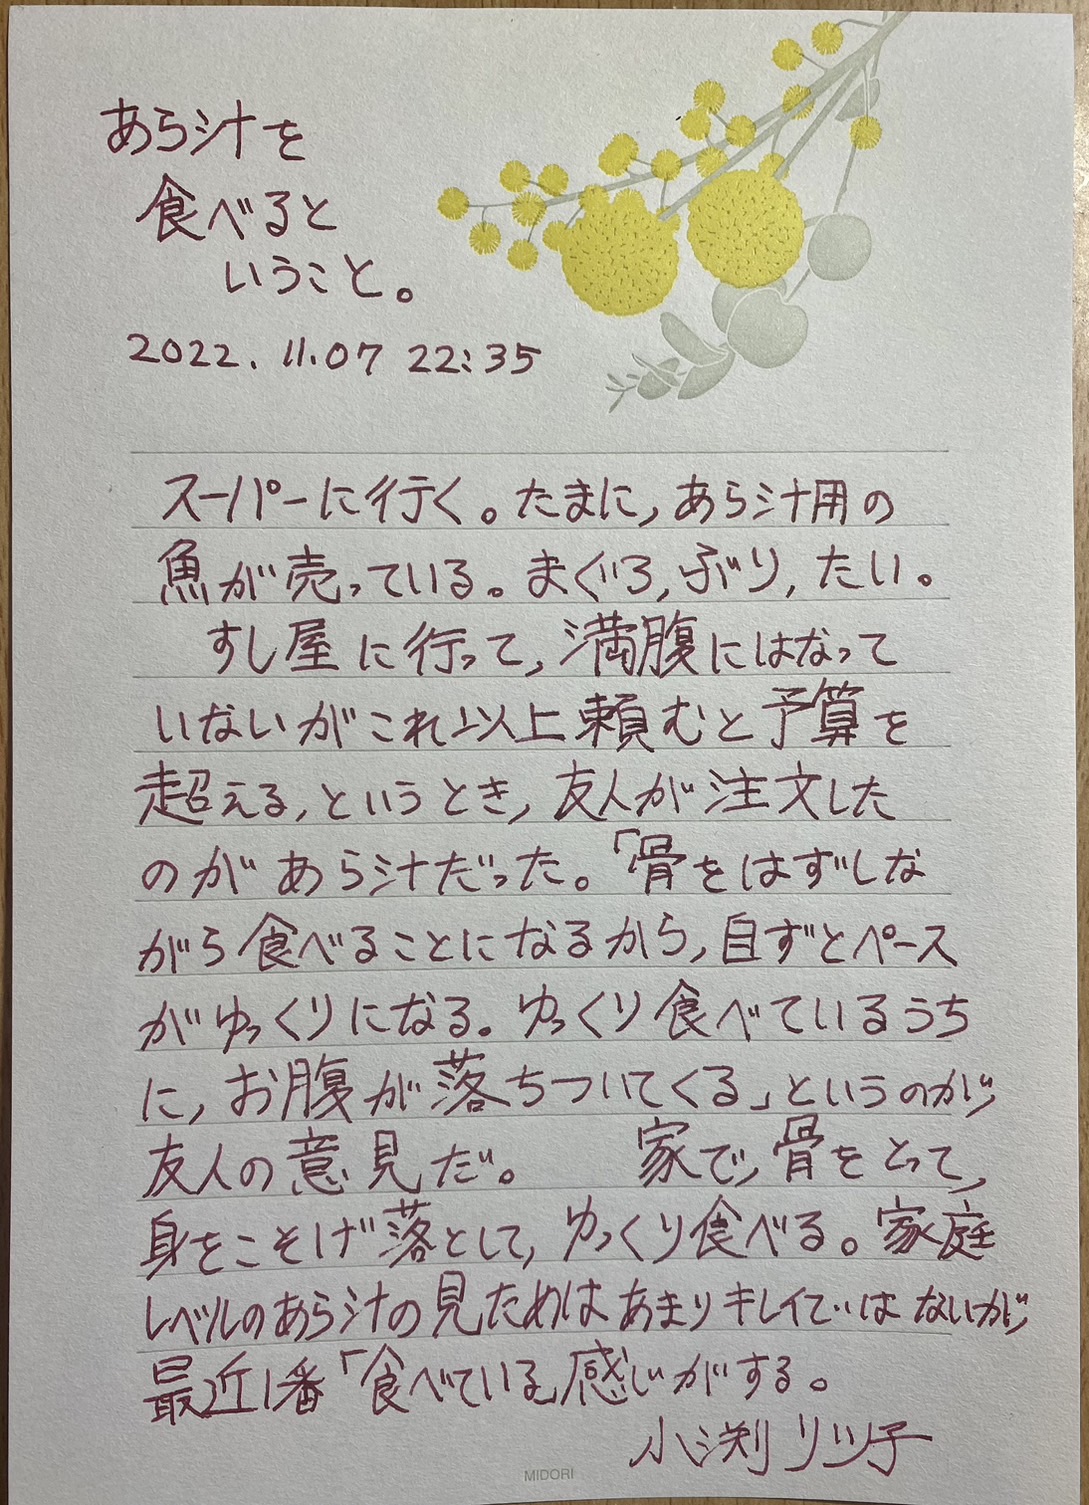 あら汁を
食べると
いうこと。
2022.11.07 22:35
スーパーに行く。たまに,あら汁用の
魚が売っている。まぐろ,ぶり,たい。
すし屋に行って,満腹にはなって
いないがこれ以上頼むと予算を
超える,というとき,友人が注文した
のがあら汁だった。「骨をはずしな
がら食べることになるから,自ずとペース
がゆっくりになる。ゆっくり食べているうち
に,お腹が落ちついてくる」というのが,
友人の意見だ。 家で,骨をとって,
身をこそげ落として,ゆっくり食べる。家庭
レベルのあら汁の見ためはあまりキレイではないが,
最近1番「食べている」感じがする。
小渕リツ子
MIDORI